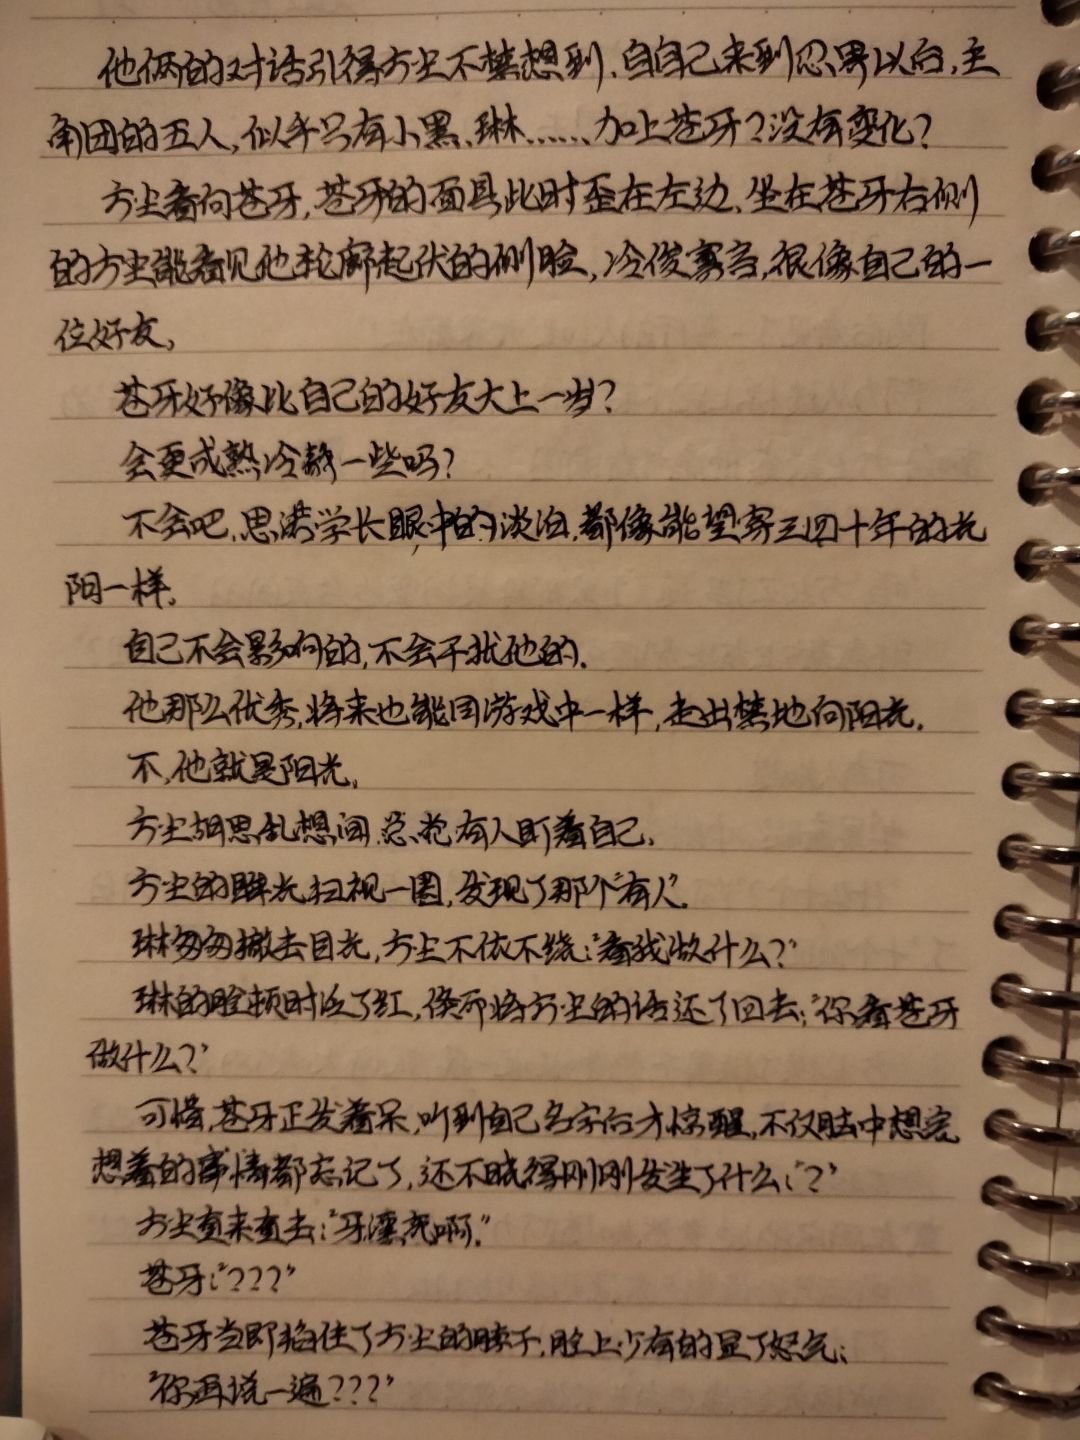 他俩的对话引得方尘不禁想到,自自己来到忍界以后,主
角团的五人,似乎只有小黑、琳……加上苍牙?没有变化?
方尘看向苍牙,苍牙的面具此时歪在左边、坐在苍牙右侧
的方尘能看见他轮廓起伏的侧脸,冷俊寡言,很像自己的一
位好友。
苍牙好像比自己的好友大上一岁?
会更成熟冷静一些吗?
不会吧,思满学长眼中的淡泊,都像能望穿三四十年的光
阳一样。
自己不会影响的,不会干扰他的。
他那么优秀,将来也能同游戏中一样,走出禁地向阳光。
不,他就是阳光。
方尘胡思乱想间,总觉有人盯着自己。
方尘的眸光扫视一圈,发现了那个“有人”。
琳匆匆撤去目光,方尘不依不绕:“看我做什么?”
琳的脸顿时泛了红,倏而将方尘的话还了回去:“你看苍牙
做什么?”
可惜,苍牙正发着呆,听到自己名字后才惊醒,不仅脑中想完
想着的事情都忘记了,还不晓得刚刚发生了什么:“?”
方尘查来查去:“牙漂亮啊。”
苍牙:“???”
苍牙当即掐住了方尘的脖子,脸上少有的显了怒气:
“你再说一遍???”